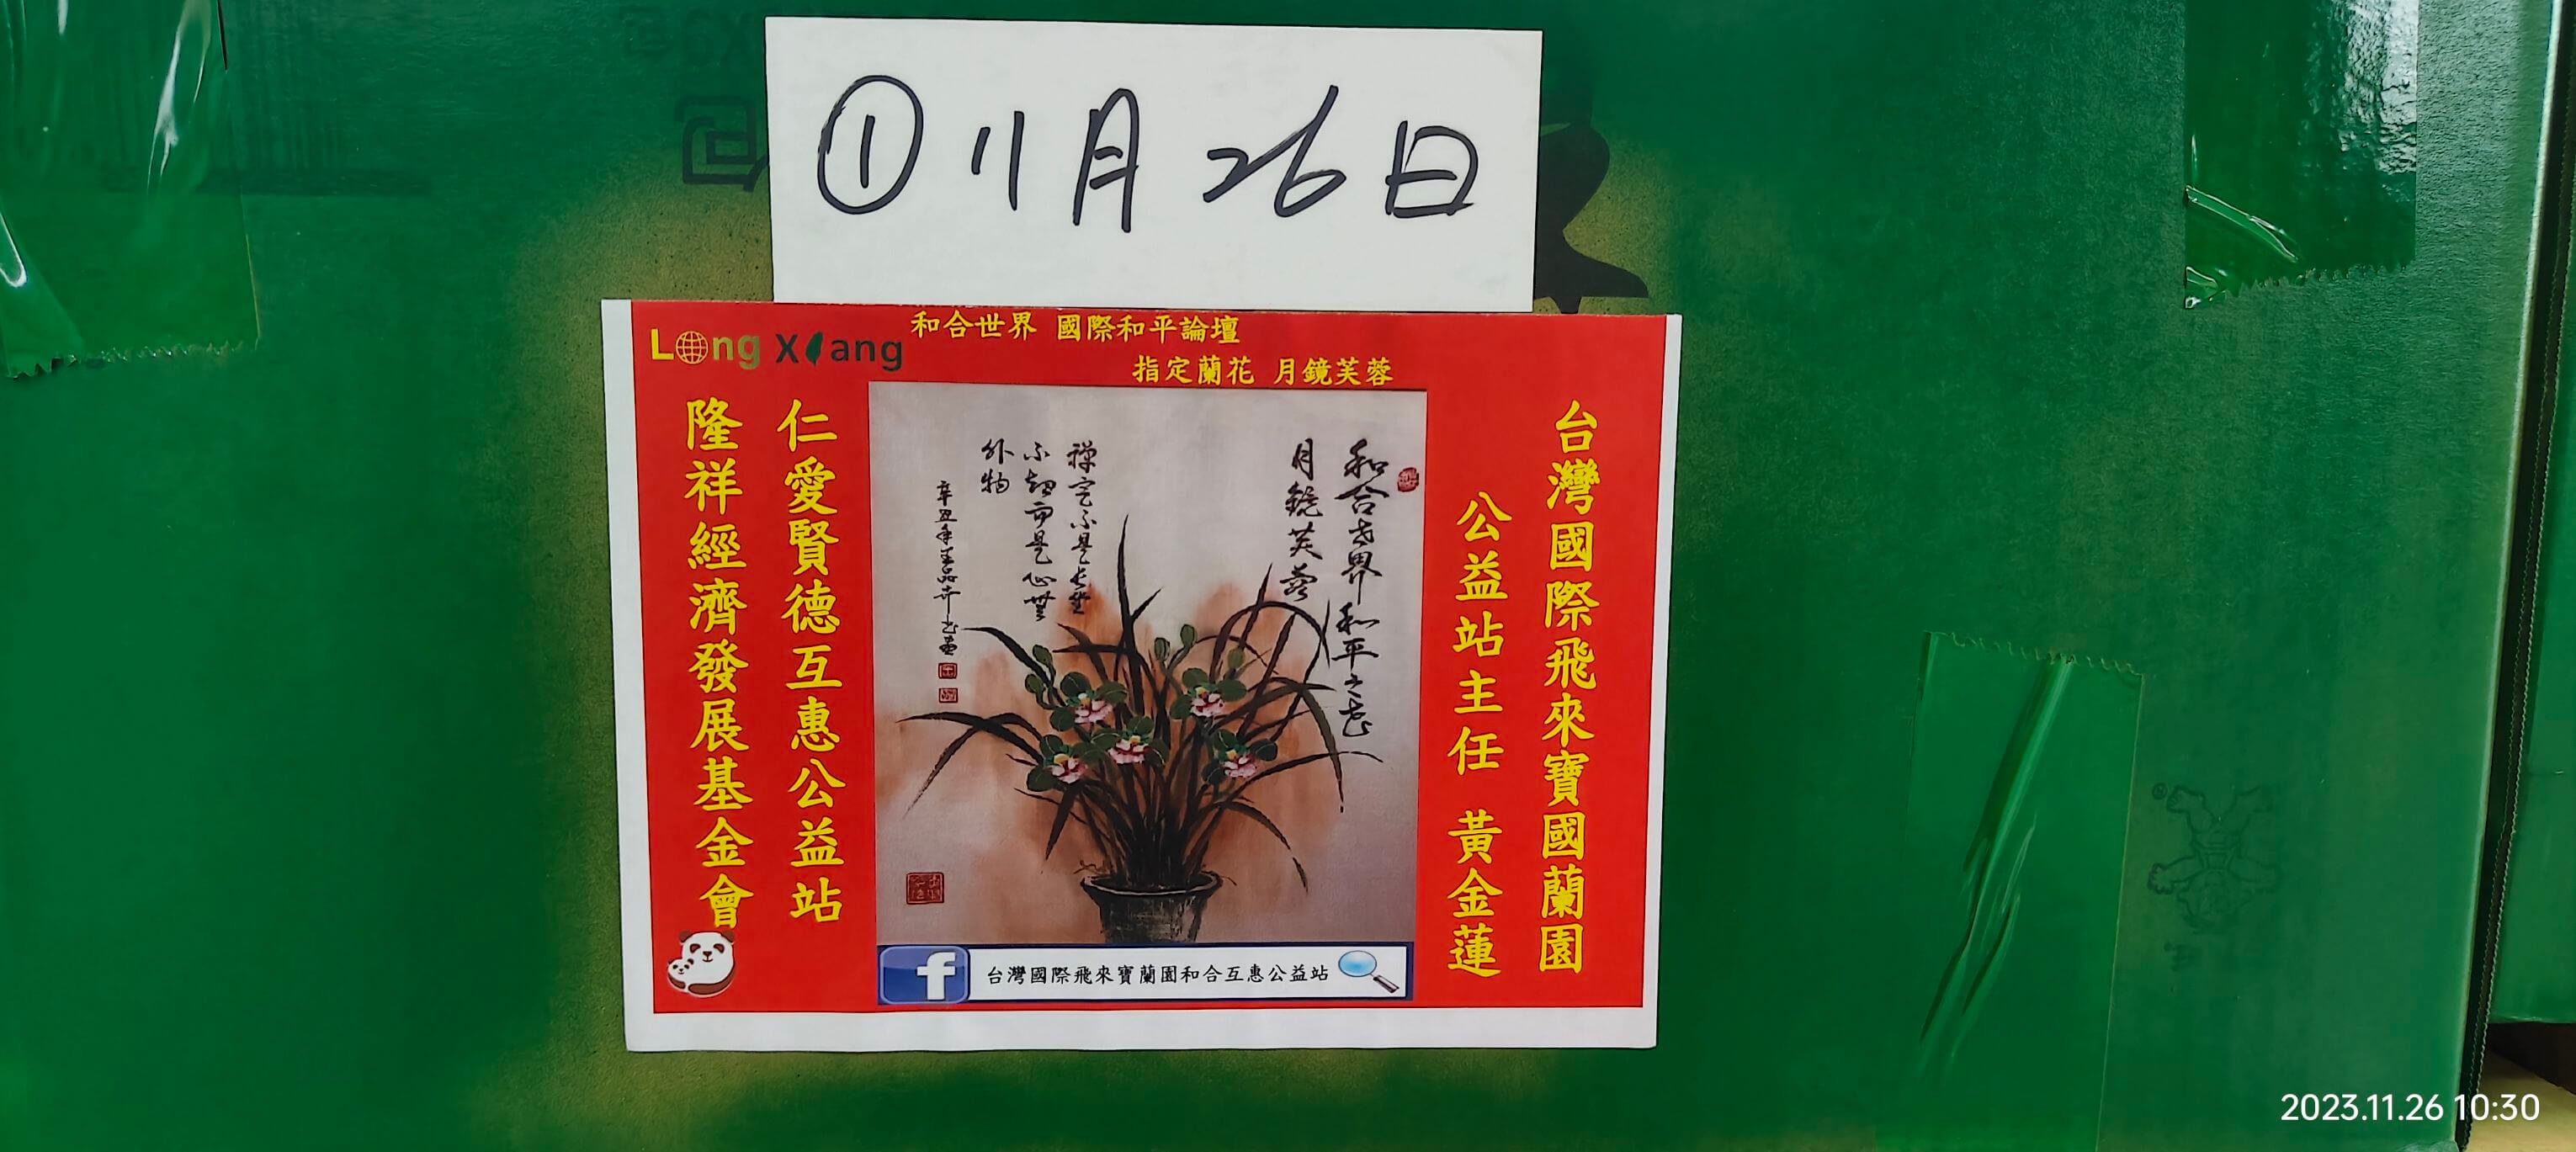 ① 11月26日
Long Xiang
和合世界 國際和平論壇
指定蘭花 月鏡芙蓉
台灣國際飛來寶國蘭園
公益站主任 黃金蓮
仁愛賢德互惠公益站
隆祥經濟發展基金會
和合世界和平之花
月鏡芙蓉
禪定不是長坐
不動而是心無
外物
辛丑年
台灣國際飛來寶蘭園和合互惠公益站
2023.11.26 10:30